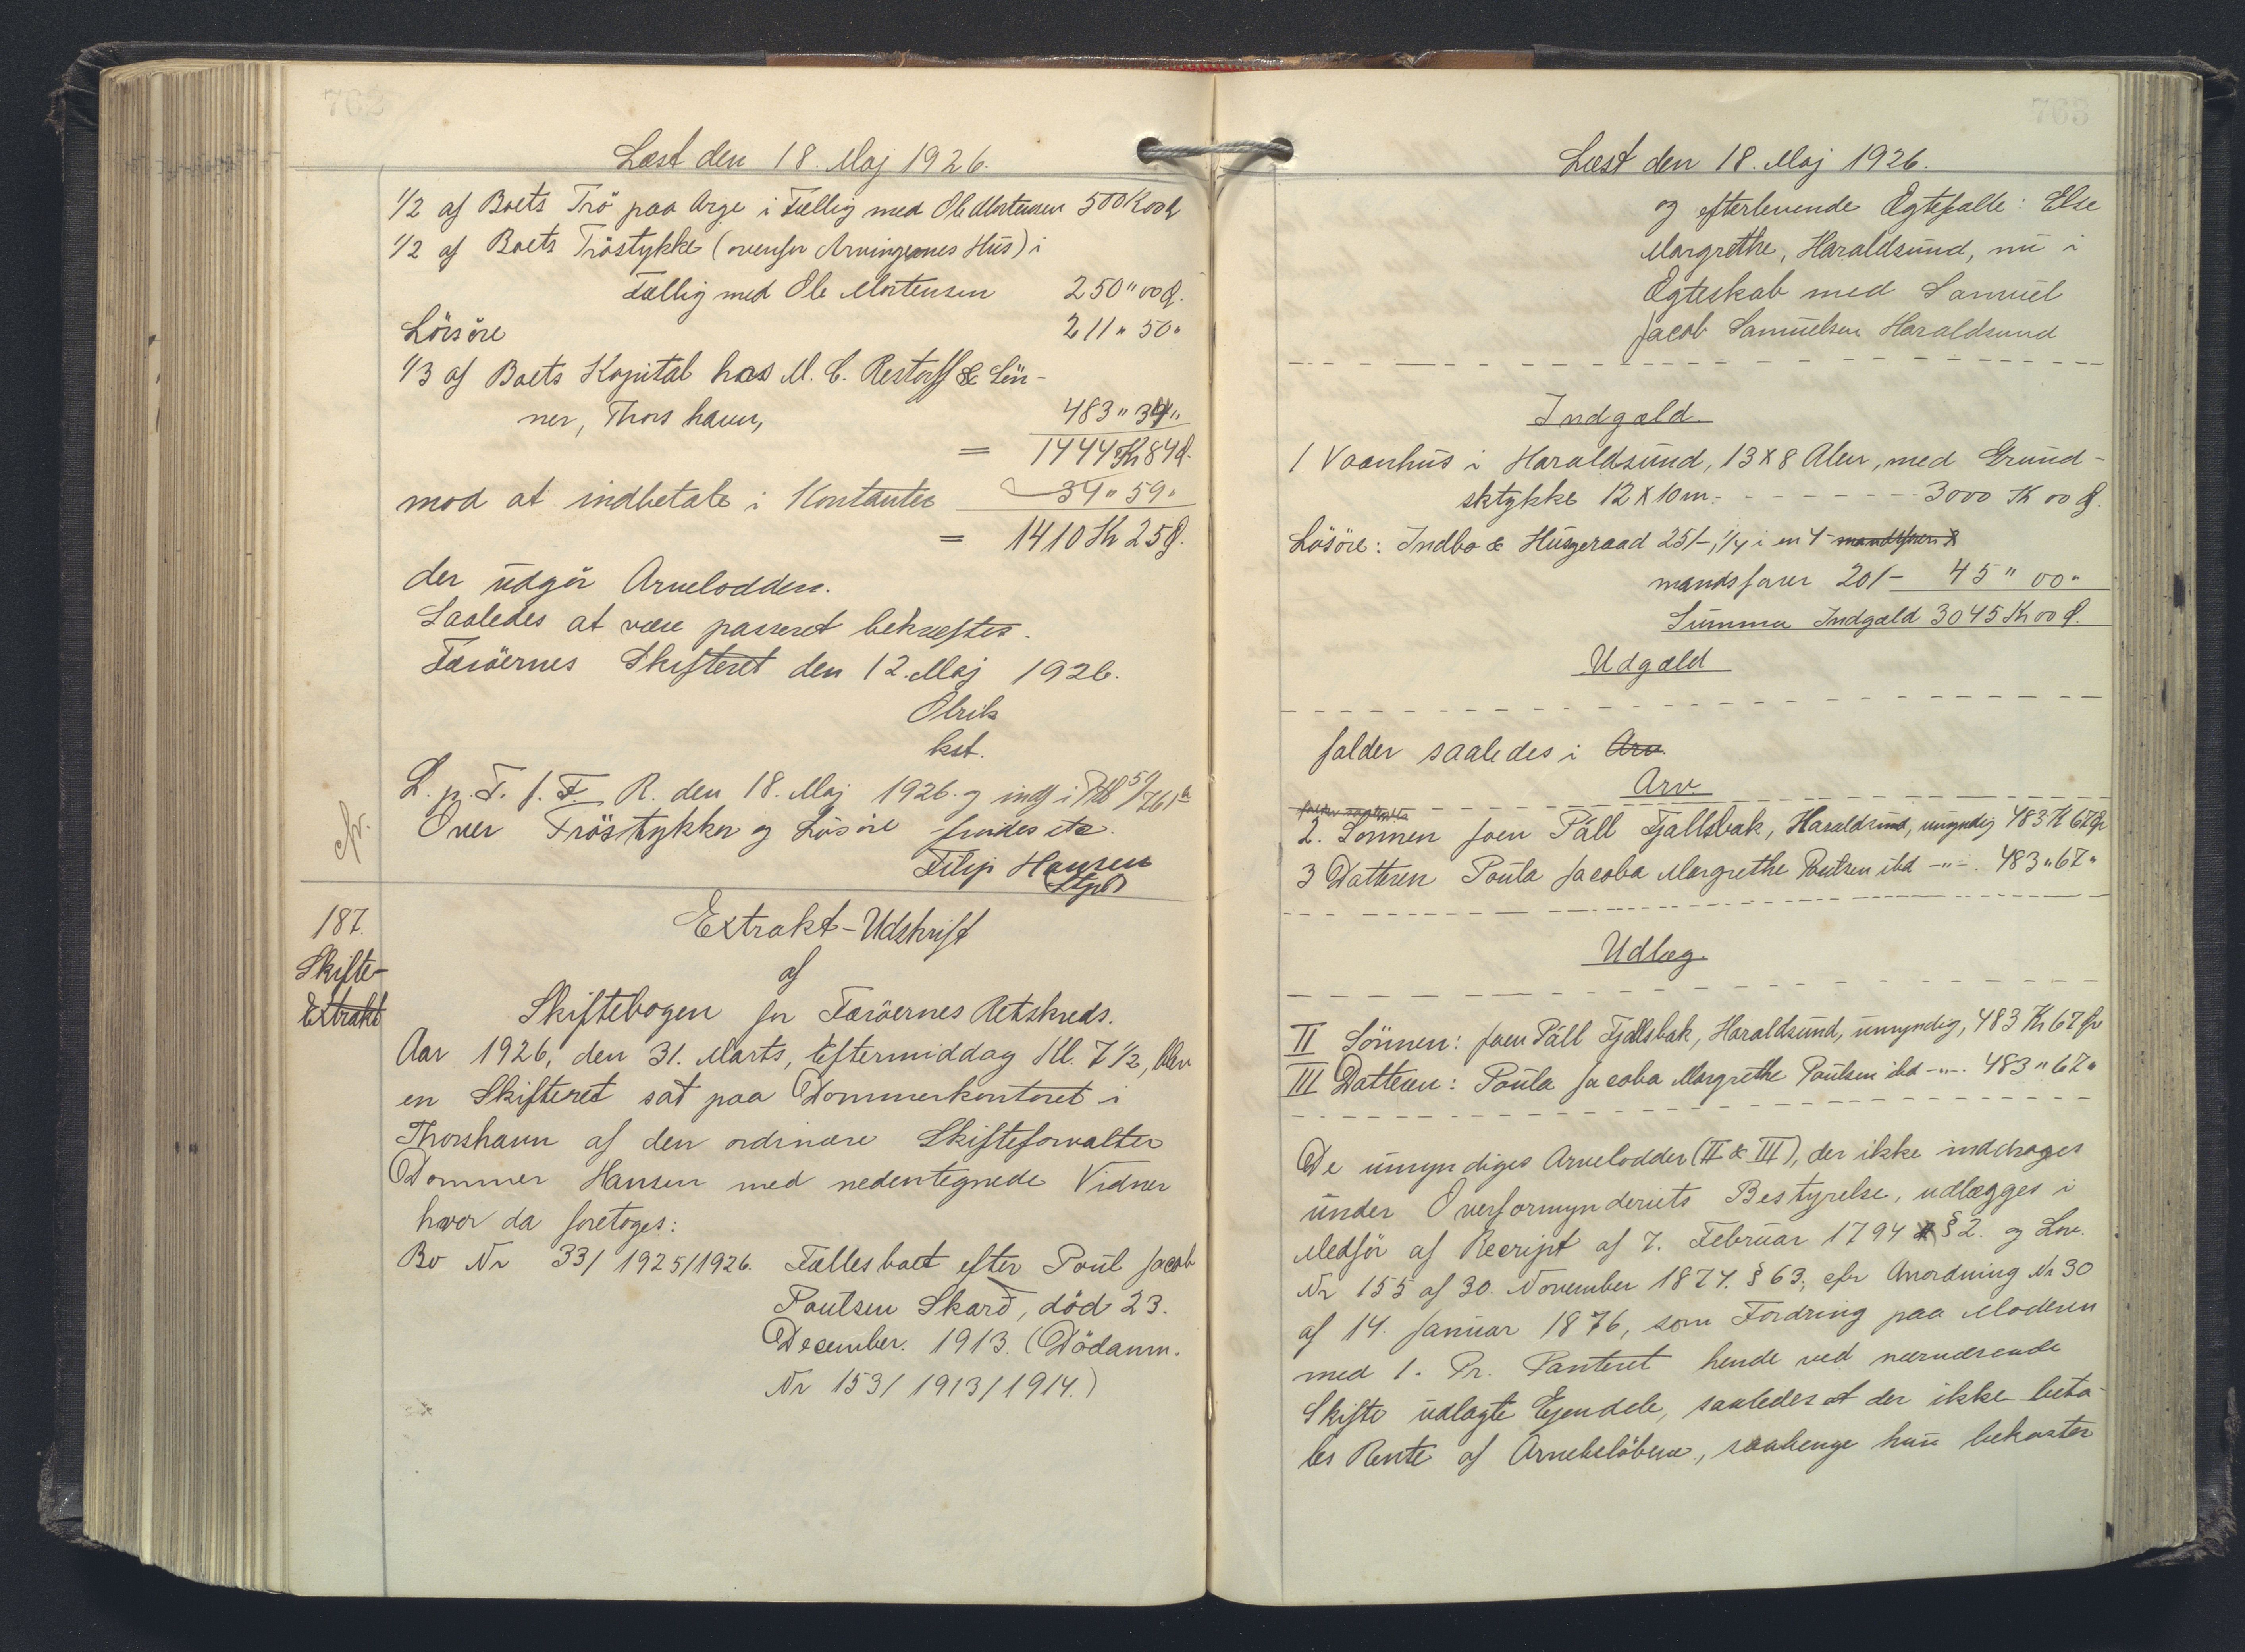 762
Læst den 18. Maj 1926.
1/2 af Boets Trö paa Arge i Fællig med Ole Mortensen 500 Kr 00 Ø
1/2 af Boets Tröstykke (ovenfor Arvingernes Hus) i
Fællig med Ole Mortensen 250 " 00 Ø.
Lösöre 211 " 50 "
1/3 af Boets Kapital hos M. C. Restorff & Sön-
ner, Thorshavn, 483 " 34 "
= 1444 Kr 84 Ø.
mod at indbetale i Kontanter 34 " 59 "
= 1410 Kr 25 Ø.
der udgör Arvelodden.
Saaledes at være passeret bekræftes.
Færöernes Skifteret den 12. Maj 1926.
Olrik
kst.
L. p. T. f. F. R. den 18. Maj 1926. og indf i Ptb 59/761
Over Tröstykker og Lösöre findes ite.
Filip Hansen
cfr.
187.
Skifte-
Extrakt
Extrakt-Udskrift
af
Skiftebogen for Færöernes Retskreds.
Aar 1926, den 31. Marts, Eftermiddag Kl. 7 1/2, blev
en Skifteret sat paa Dommerkontoret i
Thorshavn af den ordinære Skifteforvalter
Dommer Hansen med nedentegnede Vidner
hvor da foretoges:
Bo Nr 33/1925/1926. Fællesboet efter Poul Jacob
Poulsen Skarð, död 23.
December. 1913. (Dödanm.
Nr 153/1913/1914.)
763
Læst den 18. Maj 1926.
og efterlevende Ægtefælle: Else
Margrethe, Haraldsund, nu i
Ægteskab med Samuel
Jacob Samuelsen Haraldsund
Indgæld.
1 Vaanhus i Haraldsund, 13 x 8 Alen, med Grund-
sktykke 12 x 10 m. - - - - - - - 3000 K 00 Ø.
Lösöre: Indbo & Husgeraad 25/-, 1/4 i en 4-
mandsfarer 20/- 45 " 00 "
Summa Indgæld 3045 Kr 00 Ø.
Udgæld
falder saaledes i Arv.
Arv
2. Sönnen Joen Páll Fjallsbak, Haraldsund, umyndig 483 K 67 Ør
3 Datteren Poula Jacoba Margrethe Poulsen ibd -"-. 483 " 67 "
Udlæg.
II Sönnen: Joen Páll Fjallsbak, Haraldsund, umyndig, 483 Kr 67 Ør
III Datteren: Poula Jacoba Margrethe Poulsen ibd -"-. 483 " 67 "
De umyndiges Arvelodder (II & III), der ikke inddrages
under Overformynderiets Bestyrelse, udlægges i
Medför af Recript af 7. Februar 1794 § 2. og Lov.
Nr 155 af 30. November 1874. § 63, cfr Anordning Nr 30
af 14. Januar 1876, som Fordring paa Moderen
med 1. Pr. Panteret hende ved nærværende
Skifte udlagte Ejendele, saaledes at der ikke beta-
les Rente af Arvebelöbene, saalænge hun bekoster